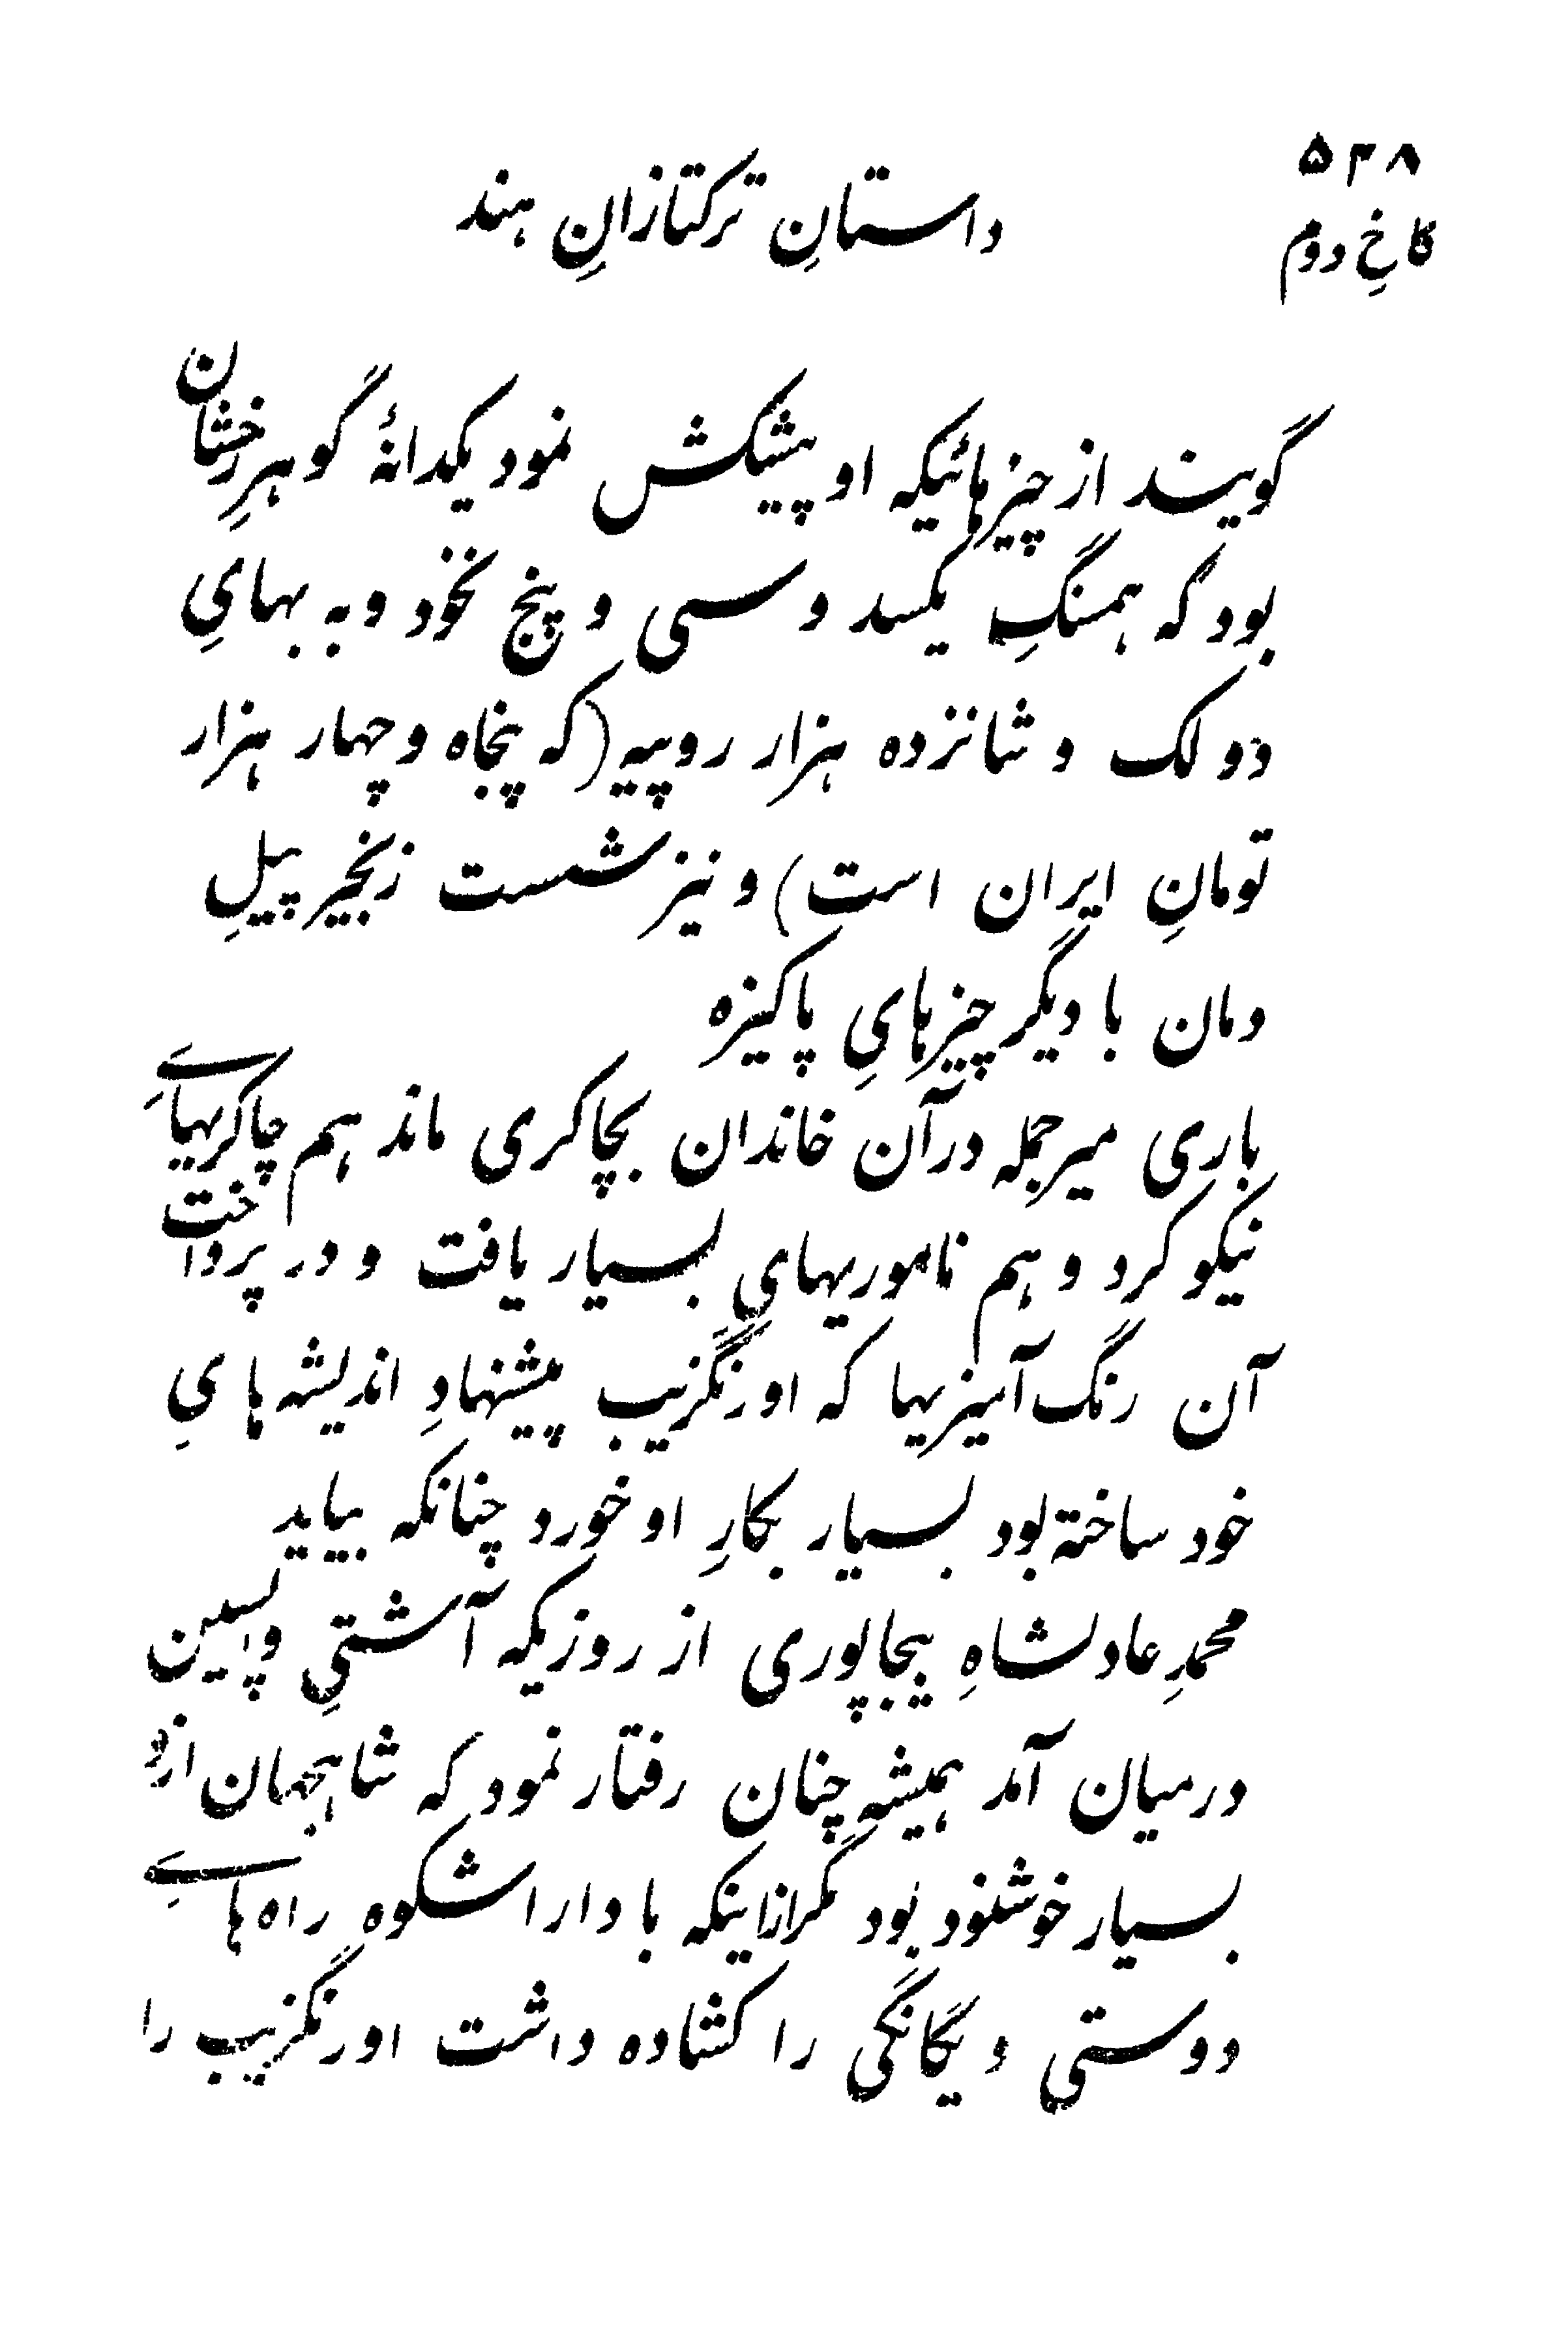 ۵۴۸
داستانِ ترکتازانِ هند
کاخِ دوم
گویند از چیزهائیکه او پیشکش نمود یکدانهٔ گوهرِ رخشان
بود که همسنگِ یکسد و سی و پنج نخود و به بهایِ
دو لک و شانزده هزار روپیه (که پنجاه و چهار هزار
تومانِ ایران است) و نیز شست زنجیر پیلِ
دمان با دیگر چیزهایِ پاکیزه
باری میر جمله در آن خاندان بچاکری ماند هم چاکریهایِ
نیکو کرد و هم ناموریهایِ بسیار یافت و در پرداخت
آن رنگ آمیزیها که اورنگزیب پیشنهادِ اندیشه هایِ
خود ساخته بود بسیار بکارِ او خورد چنانکه بیاید
محمدِ عادلشاهِ بیجاپوری از روزیکه آشتیِ واپسین
درمیان آمد همیشه چنان رفتار نمود که شاهجهان ازو
بسیار خوشنود بود مگر ازاینکه با داراشکوه راه هایِ
دوستی و یگانگی را کشاده داشت اورنگزیب را